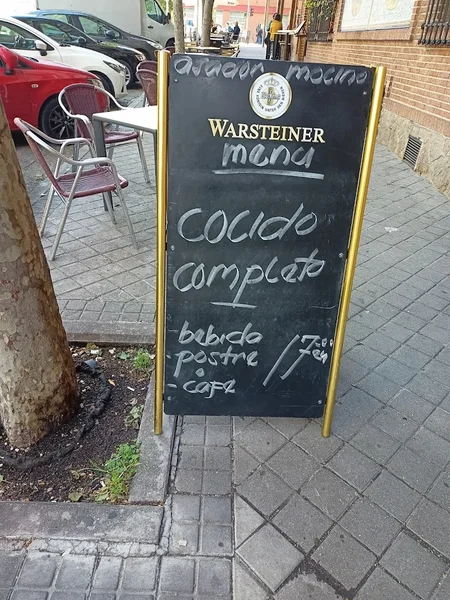 asador mocino
WARSTEINER
menu
COCIDO
completo
- bebida
- postre
o
- café
17.00